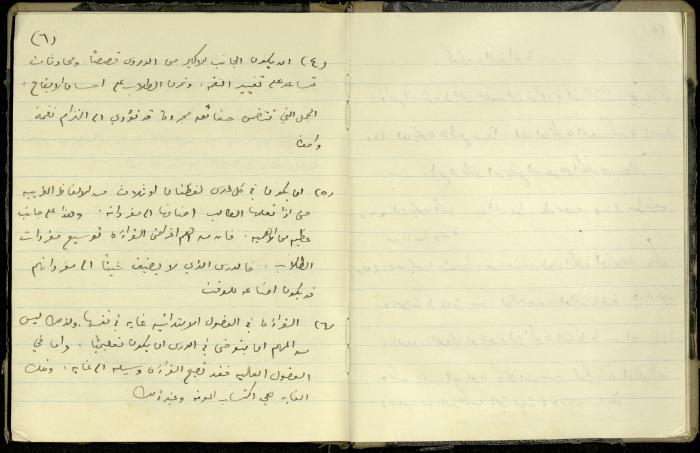 (٦)
(٤) ان يكون الجانب الاكبر من الدروس قصصًا ومحادثات
تساعد على تغيير النغمة، وتمرن الطلاب على احسان الايقاع،
الجمل التي تتضمن حقائق مجردة قد تؤدي الى التزام نغمة
واحدة
(٥) ان يكون في كل درس لفظتان او ثلاث من الالفاظ الغريبه
حتى اذا تعلمها الطالب اضافها الى مفرداته، وهذا على جانب
عظيم من الاهمية، فان من اهم اغراض القراءة توسيع مفردات
الطلاب، فالدرس الذي لا يضيف شيئًا الى مفرداتهم
قد يكون اضاعه للوقت
(٦) القراءة في الفصول الابتدائية غاية في نفسها، ولذلك ليس
من المهم ان يتوخى في الدرس ان يكون تعليميًا، واما في
الفصول العاليه فقد تصبح القراءة وسيله الى غايه، وتلك
الغاية هي اكتساب المعرفه وغير ذلك